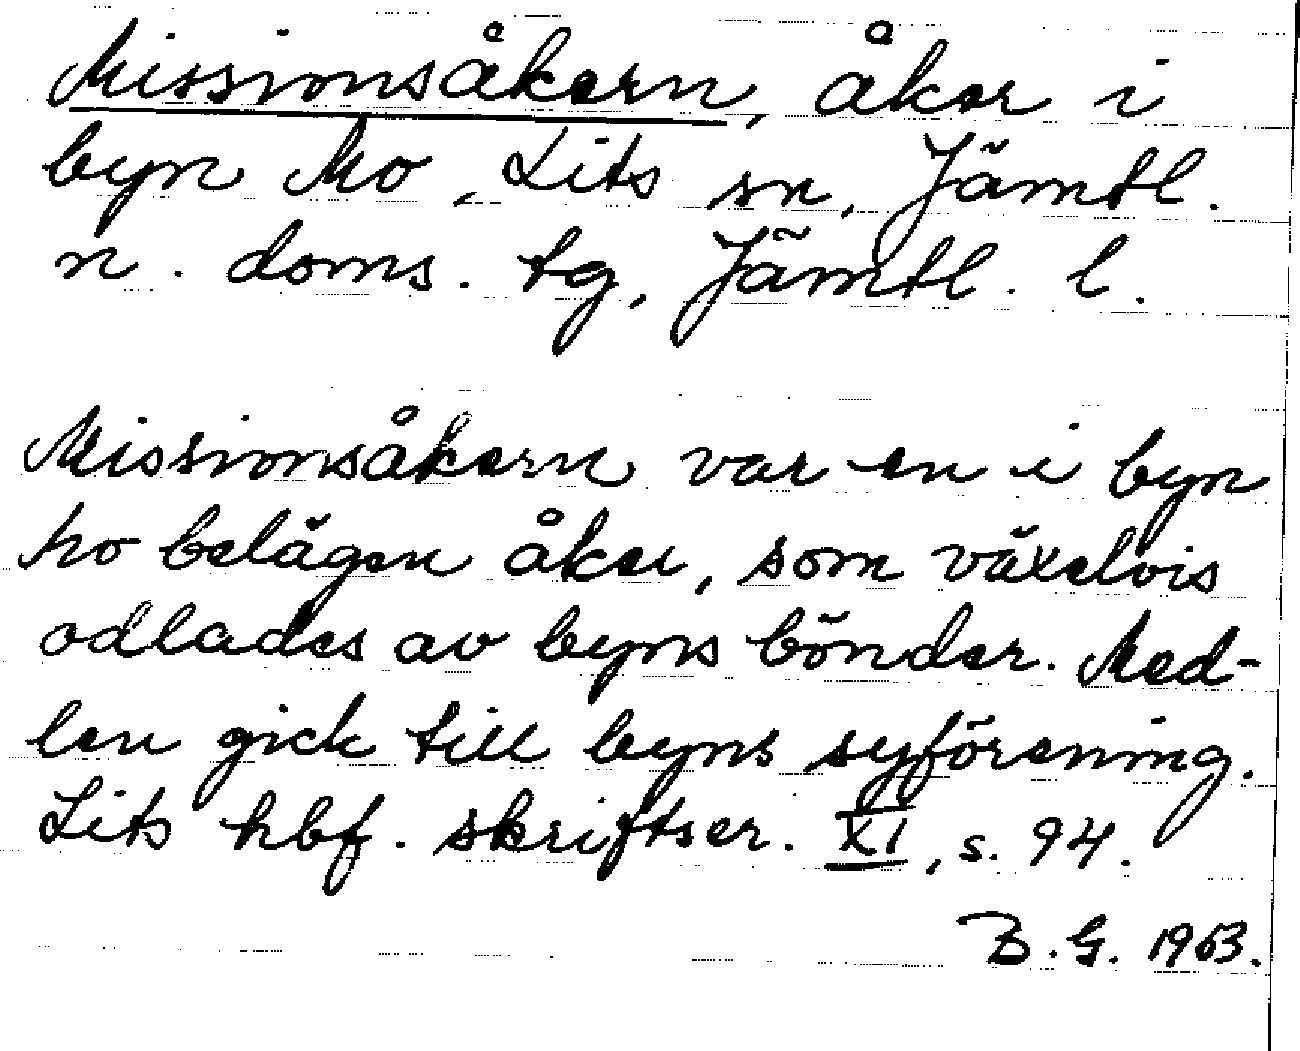 Missionsåkern, åker i
byn Mo, Lits sn, Jämtl.
n. doms. tg, Jämtl. l.
Missionsåkern var en i byn
Mo belägen åker, som växelvis
odlades av byns bönder. Med-
len gick till byns syförening.
Lits hbf. skriftser. XI, s. 94.
B.G. 1963.